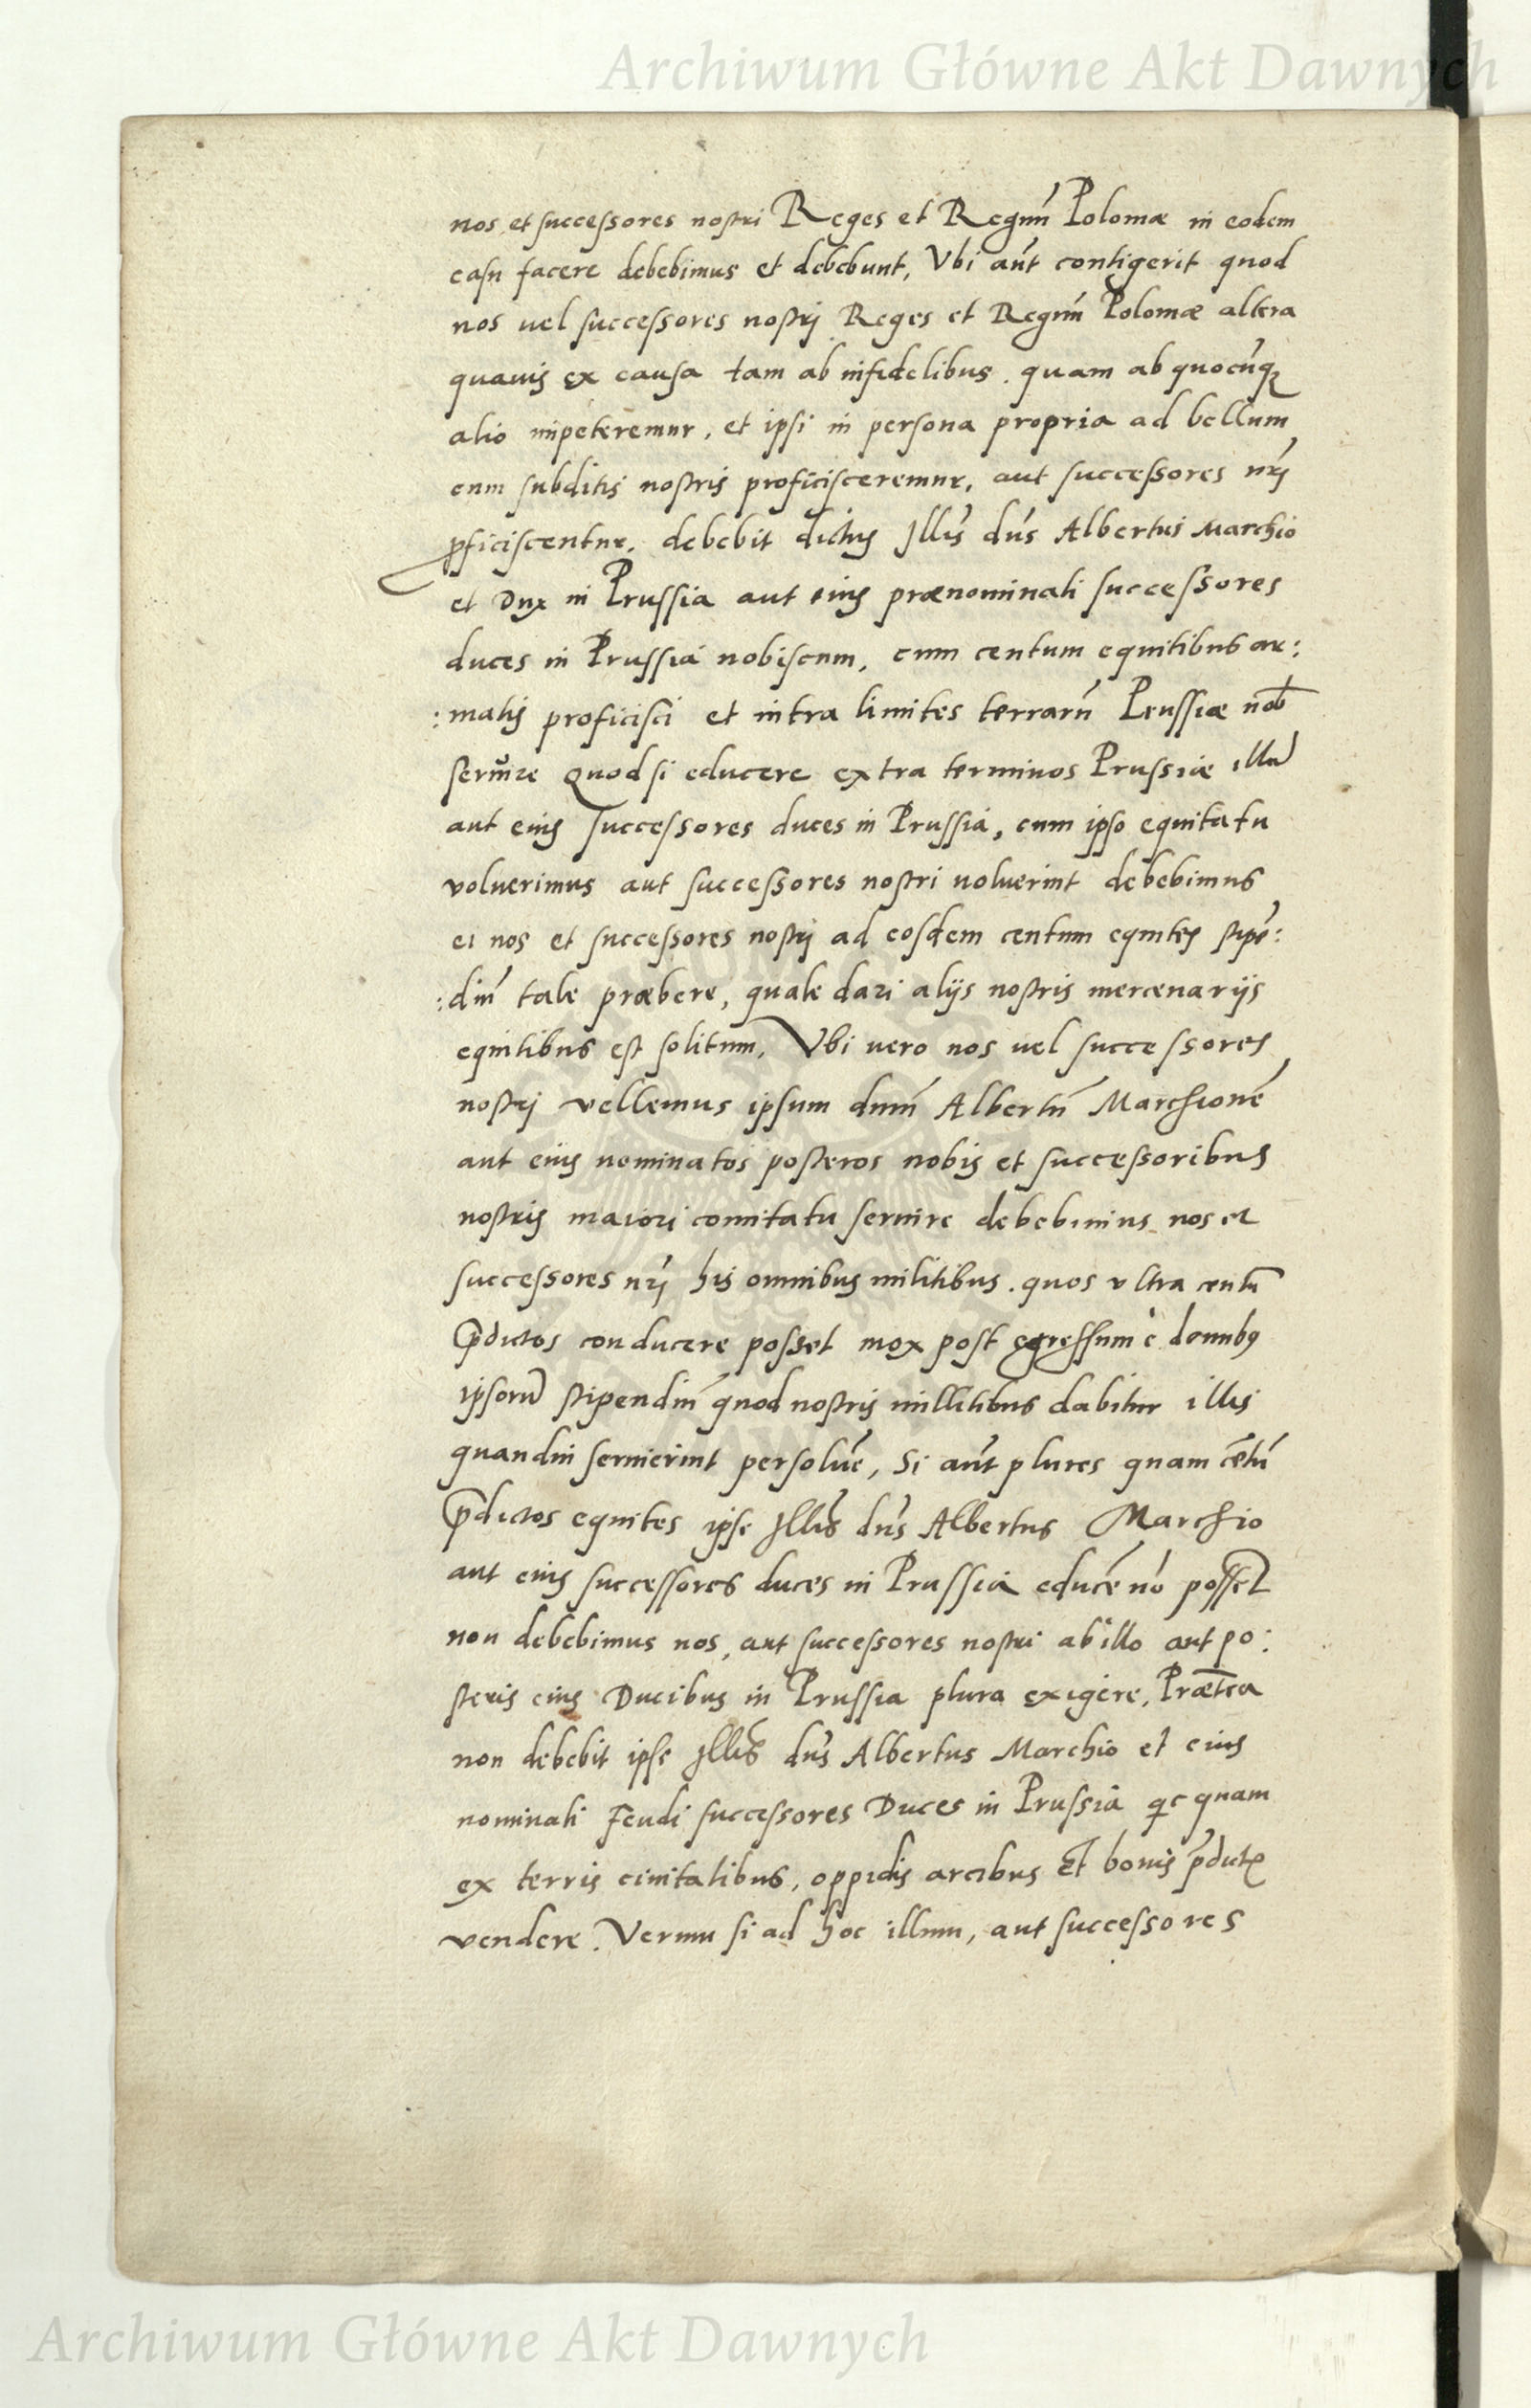 Archiwum Główne Akt Dawnych
nos et successores nostri Reges et Regnū Poloniæ in eodem
casu facere debebimus et debebunt, Vbi aūt contigerit quod
nos vel successores nostrj Reges et Regnū Poloniæ altera
quauis ex causa tam ab infidelibus. quam ab quocūq
alio impeteremur, et ipsi in persona propria ad bellum
cum subditis nostris proficisceremur, aut successores nrj̄
ꝓficiscentur, debebit dictus Illis̄ dn̄s Albertus Marchio
et Dux in Prussia aut eius prænominati successores
duces in Prussia nobiscum, cum centum equitibus ar:
:matis proficisci et intra limites terrarū Prussiæ nob̄
seruire Quod si educere extra terminos Prussiæ illū
aut eius successores duces in Prussia, cum ipso equitatu
voluerimus aut successores nostri uoluerint debebimus
ei nos et successores nostrj ad eosdem centum equites stipē:
:diū tale præbere, quale dari alijs nostris mercenarijs
equitibus est solitum, Vbi uero nos uel successores
nostrj vellemus ipsum dnm̄ Albertū Marchionē
aut eius nominatos posteros nobis et successoribus
nostris maiori comitatu seruire debebimus nos et
successores nrj̄ his omnibus militibus. quos vltra centū
p̄dictos conducere posset mox post egressum è domibꝰ
ipsorū stipendiū quod nostris millitibus dabitur illis
quandiu seruierint persoluē, Si aūt plures quam cētū
p̄dictos equites ipse Illis̄ dn̄s Albertus Marchio
aut eius successores duces in Prussia educē nō posset
non debebimus nos, aut successores nostri ab illo aut po:
steris eius Ducibus in Prussia plura exigere, Præt̄ea
non debebit ipse Illis̄ dn̄s Albertus Marchio et eius
nominati Feudi successores Duces in Prussia qicquam
ex terris ciuitatibus, oppidis arcibus Et bonis p̄dict
vendere. Verum si ad hoc illum, aut successores
Archiwum Główne Akt Dawnych